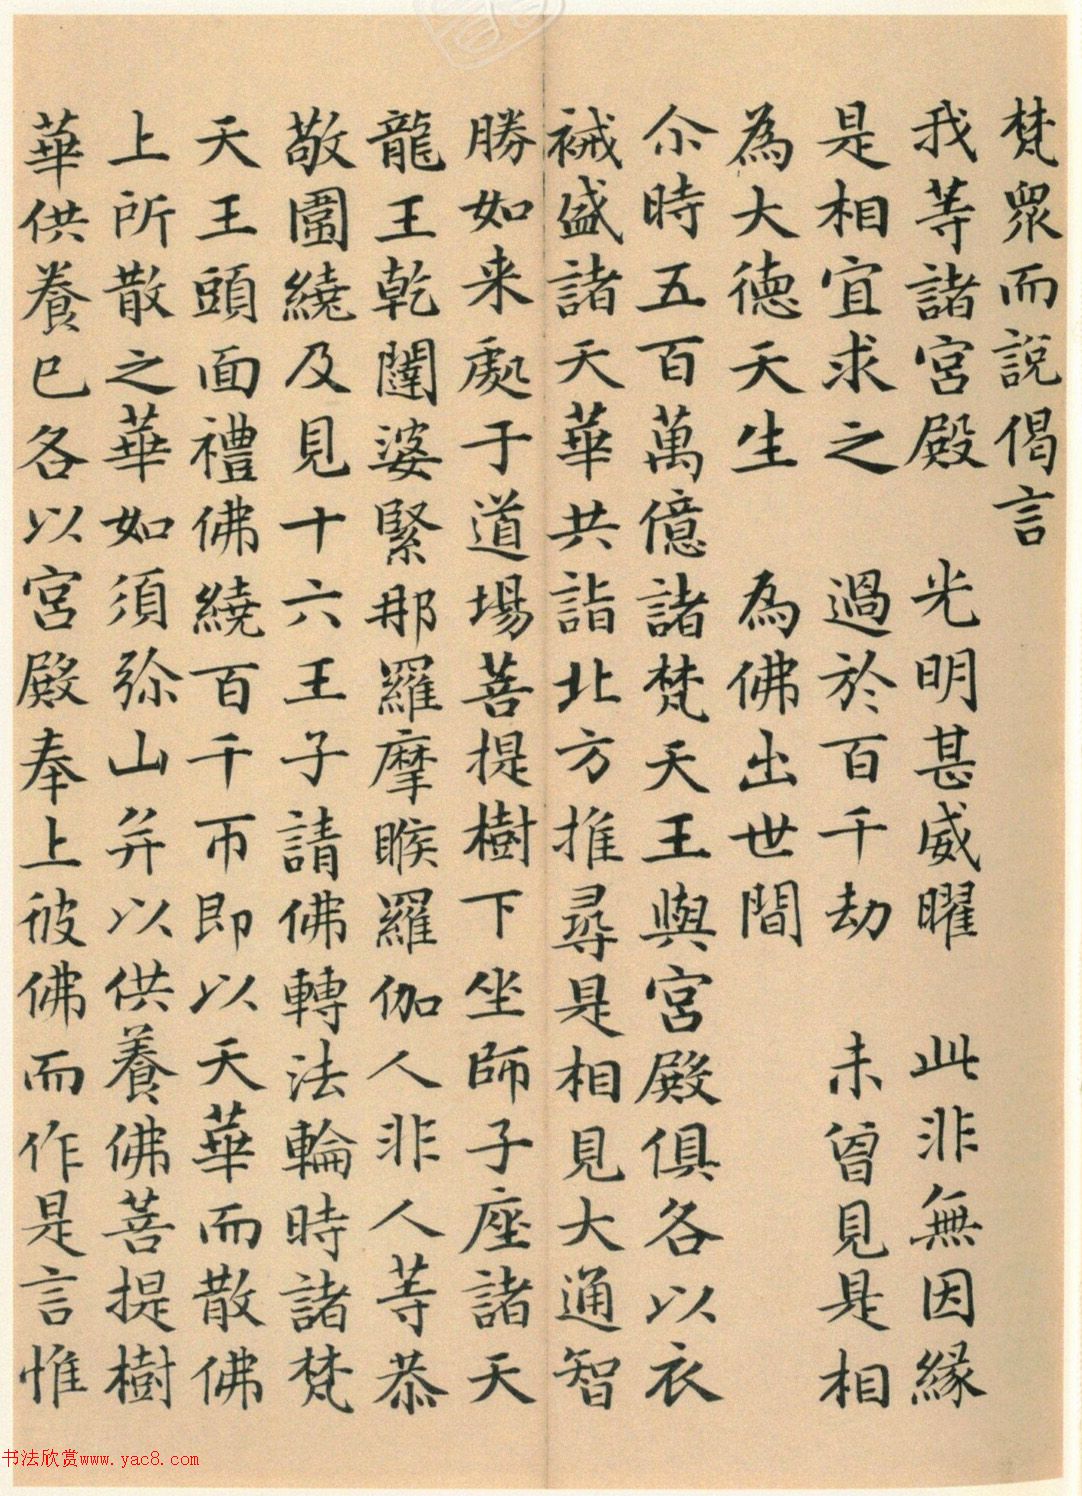 梵眾而說偈言
我等諸宮殿 光明甚威曜 此非無因緣
是相宜求之 過於百千劫 未曾見是相
為大德天生 為佛出世間
尒時五百萬億諸梵天王與宮殿俱各以衣
裓盛諸天華共詣北方推尋是相見大通智
勝如来處于道場菩提樹下坐師子座諸天
龍王乾闥婆緊那羅摩睺羅伽人非人等恭
敬圍繞及見十六王子請佛轉法輪時諸梵
天王頭面禮佛繞百千帀即以天華而散佛
上所散之華如須弥山并以供養佛菩提樹
華供養已各以宮殿奉上彼佛而作是言惟
书法欣赏www.yac8.com